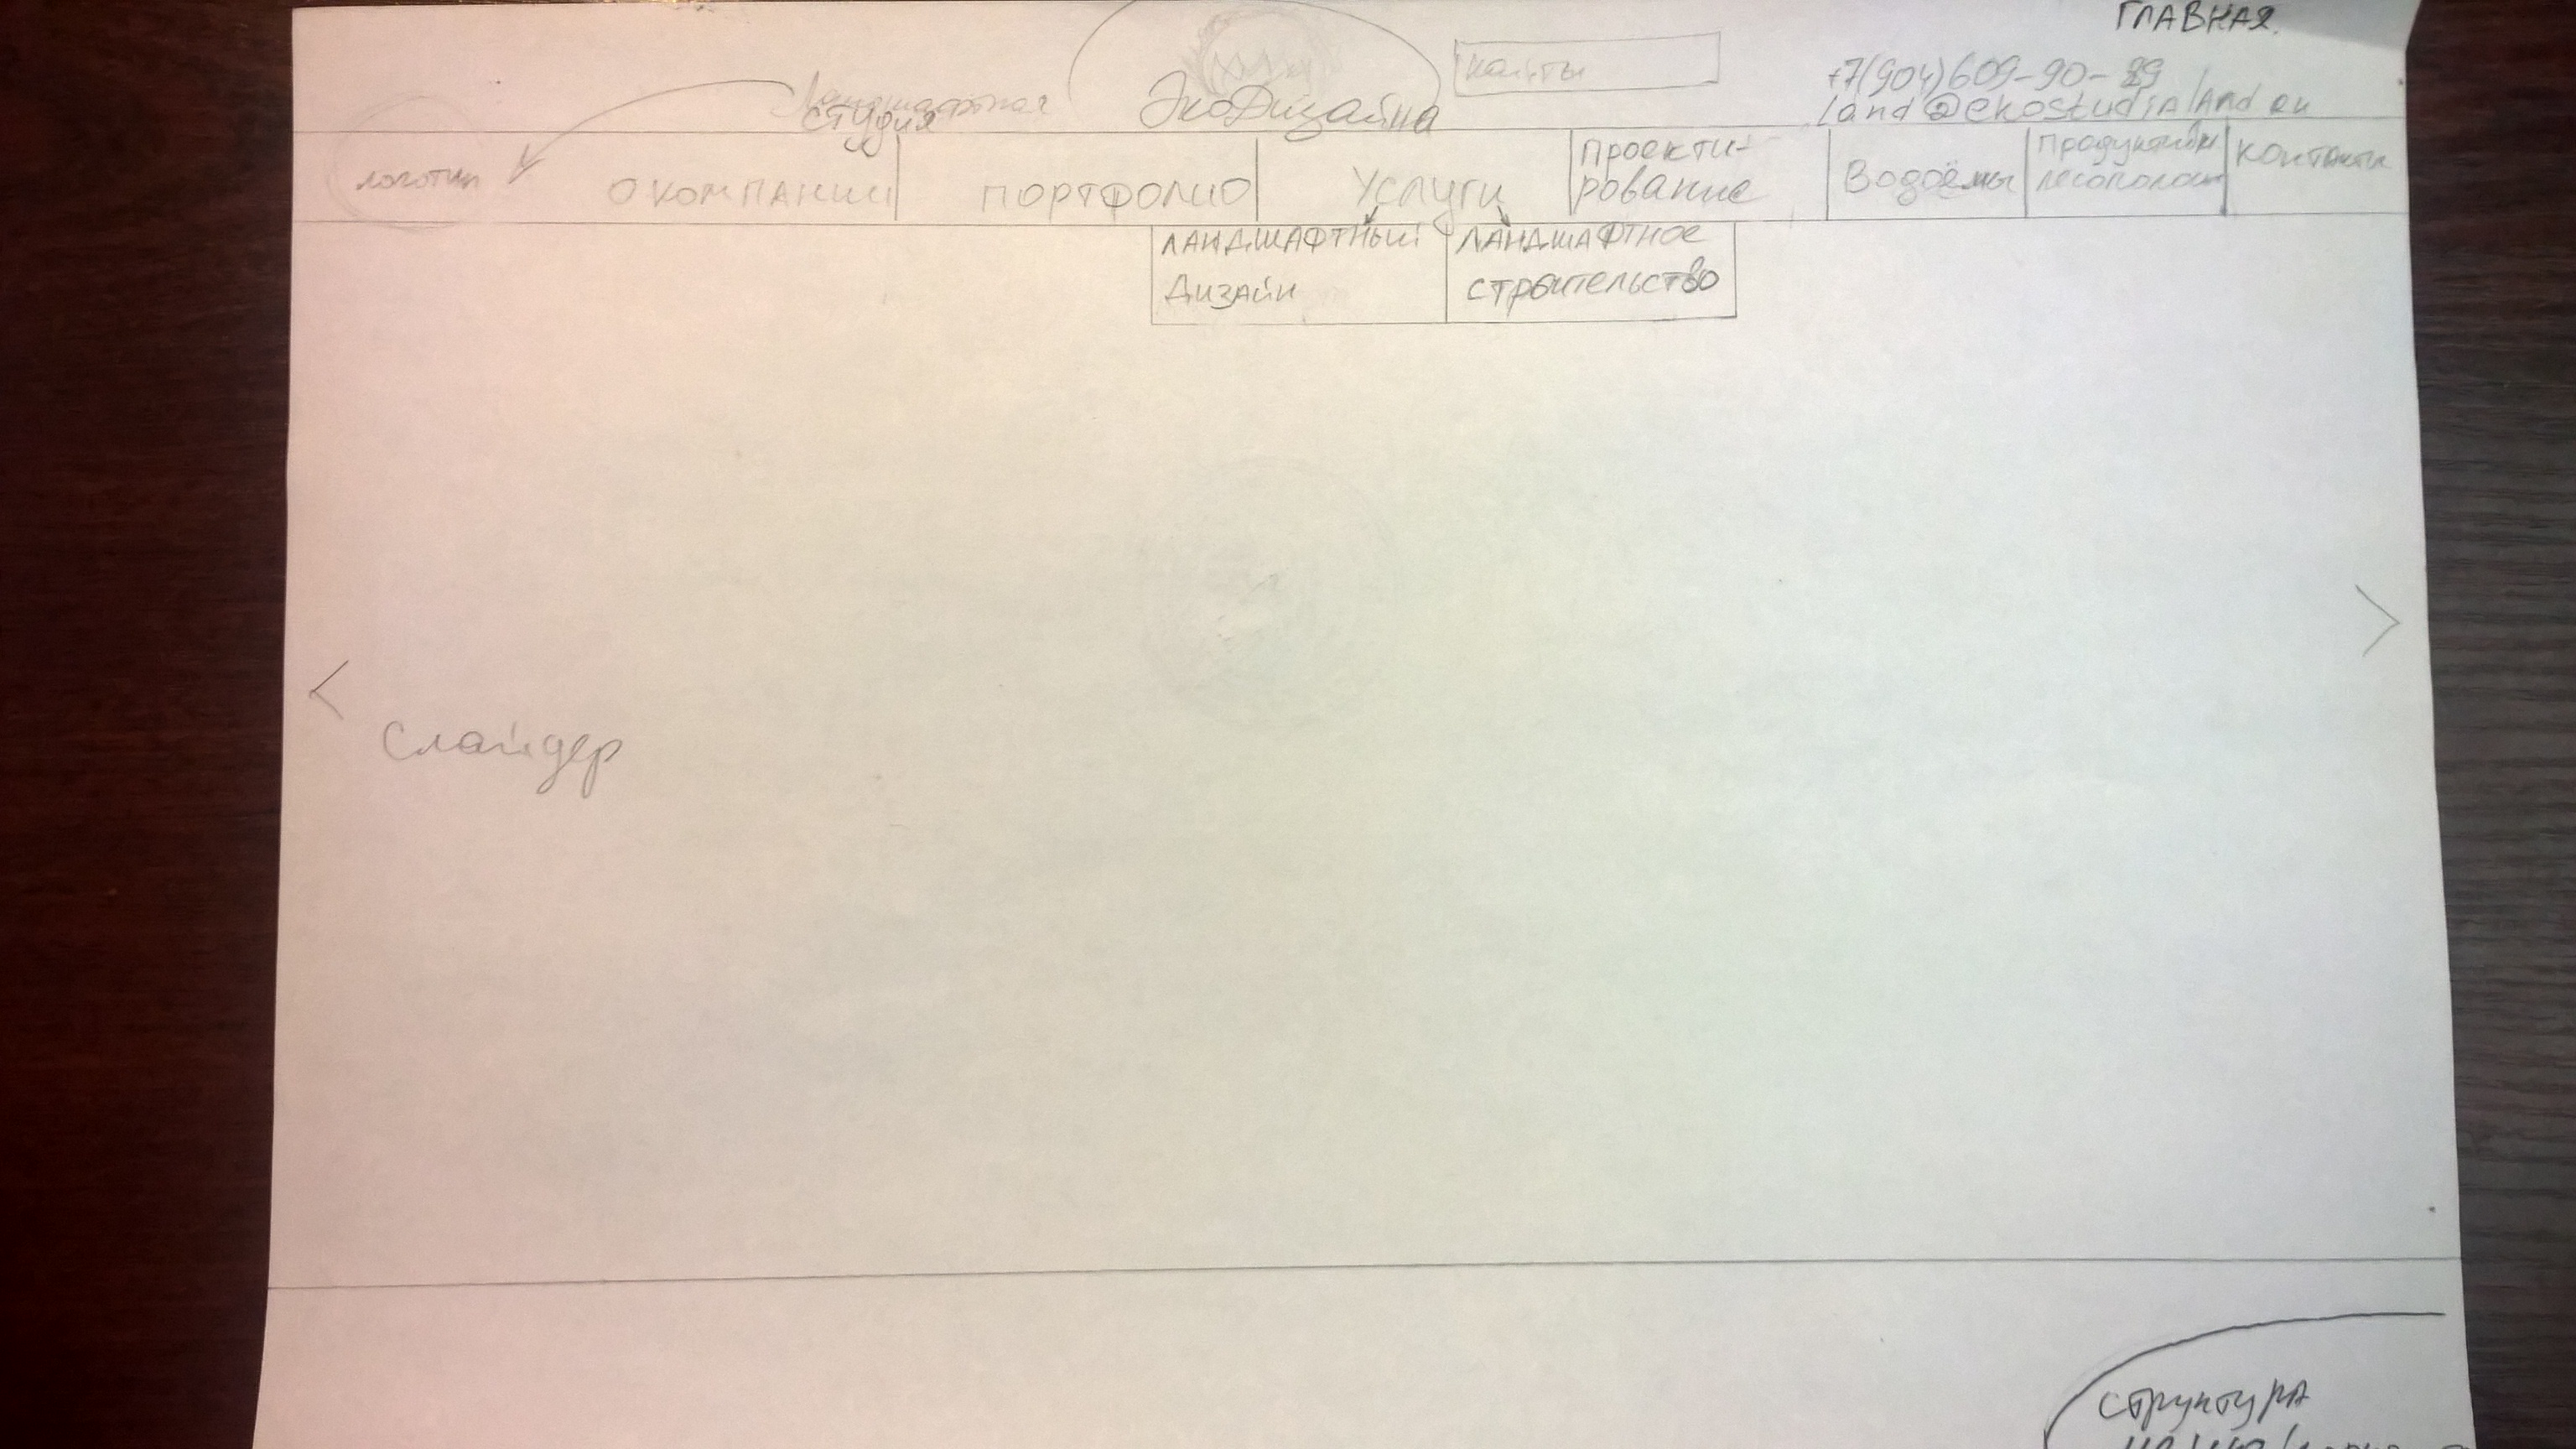 ГЛАВНАЯ.
Ландшафтная
студия
ЭкоДизайна
найти
+7(904)609-90-89
land@ekostudialand ru
логотип
О КОМПАНИИ
ПОРТФОЛИО
Услуги
Проекти-
рование
Водоёмы
Контакты
ЛАНДШАФТНЫЙ
Дизайн
ЛАНДШАФТНОЕ
строительство
< >
Слайдер
структура